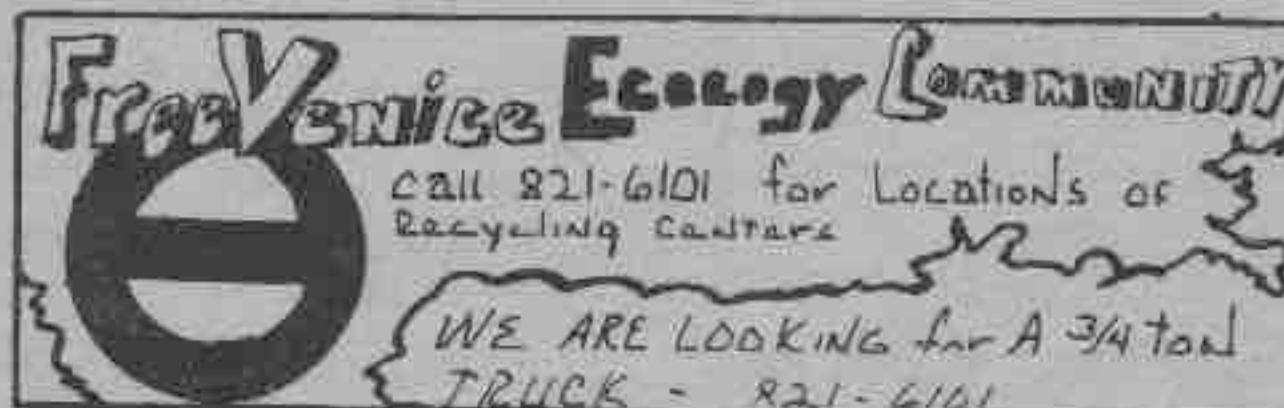 Free Venice Ecology Community
call 821-6101 for Locations of
Recycling Centers
WE ARE LOOKING for A 3/4 ton
TRUCK - 821-6101